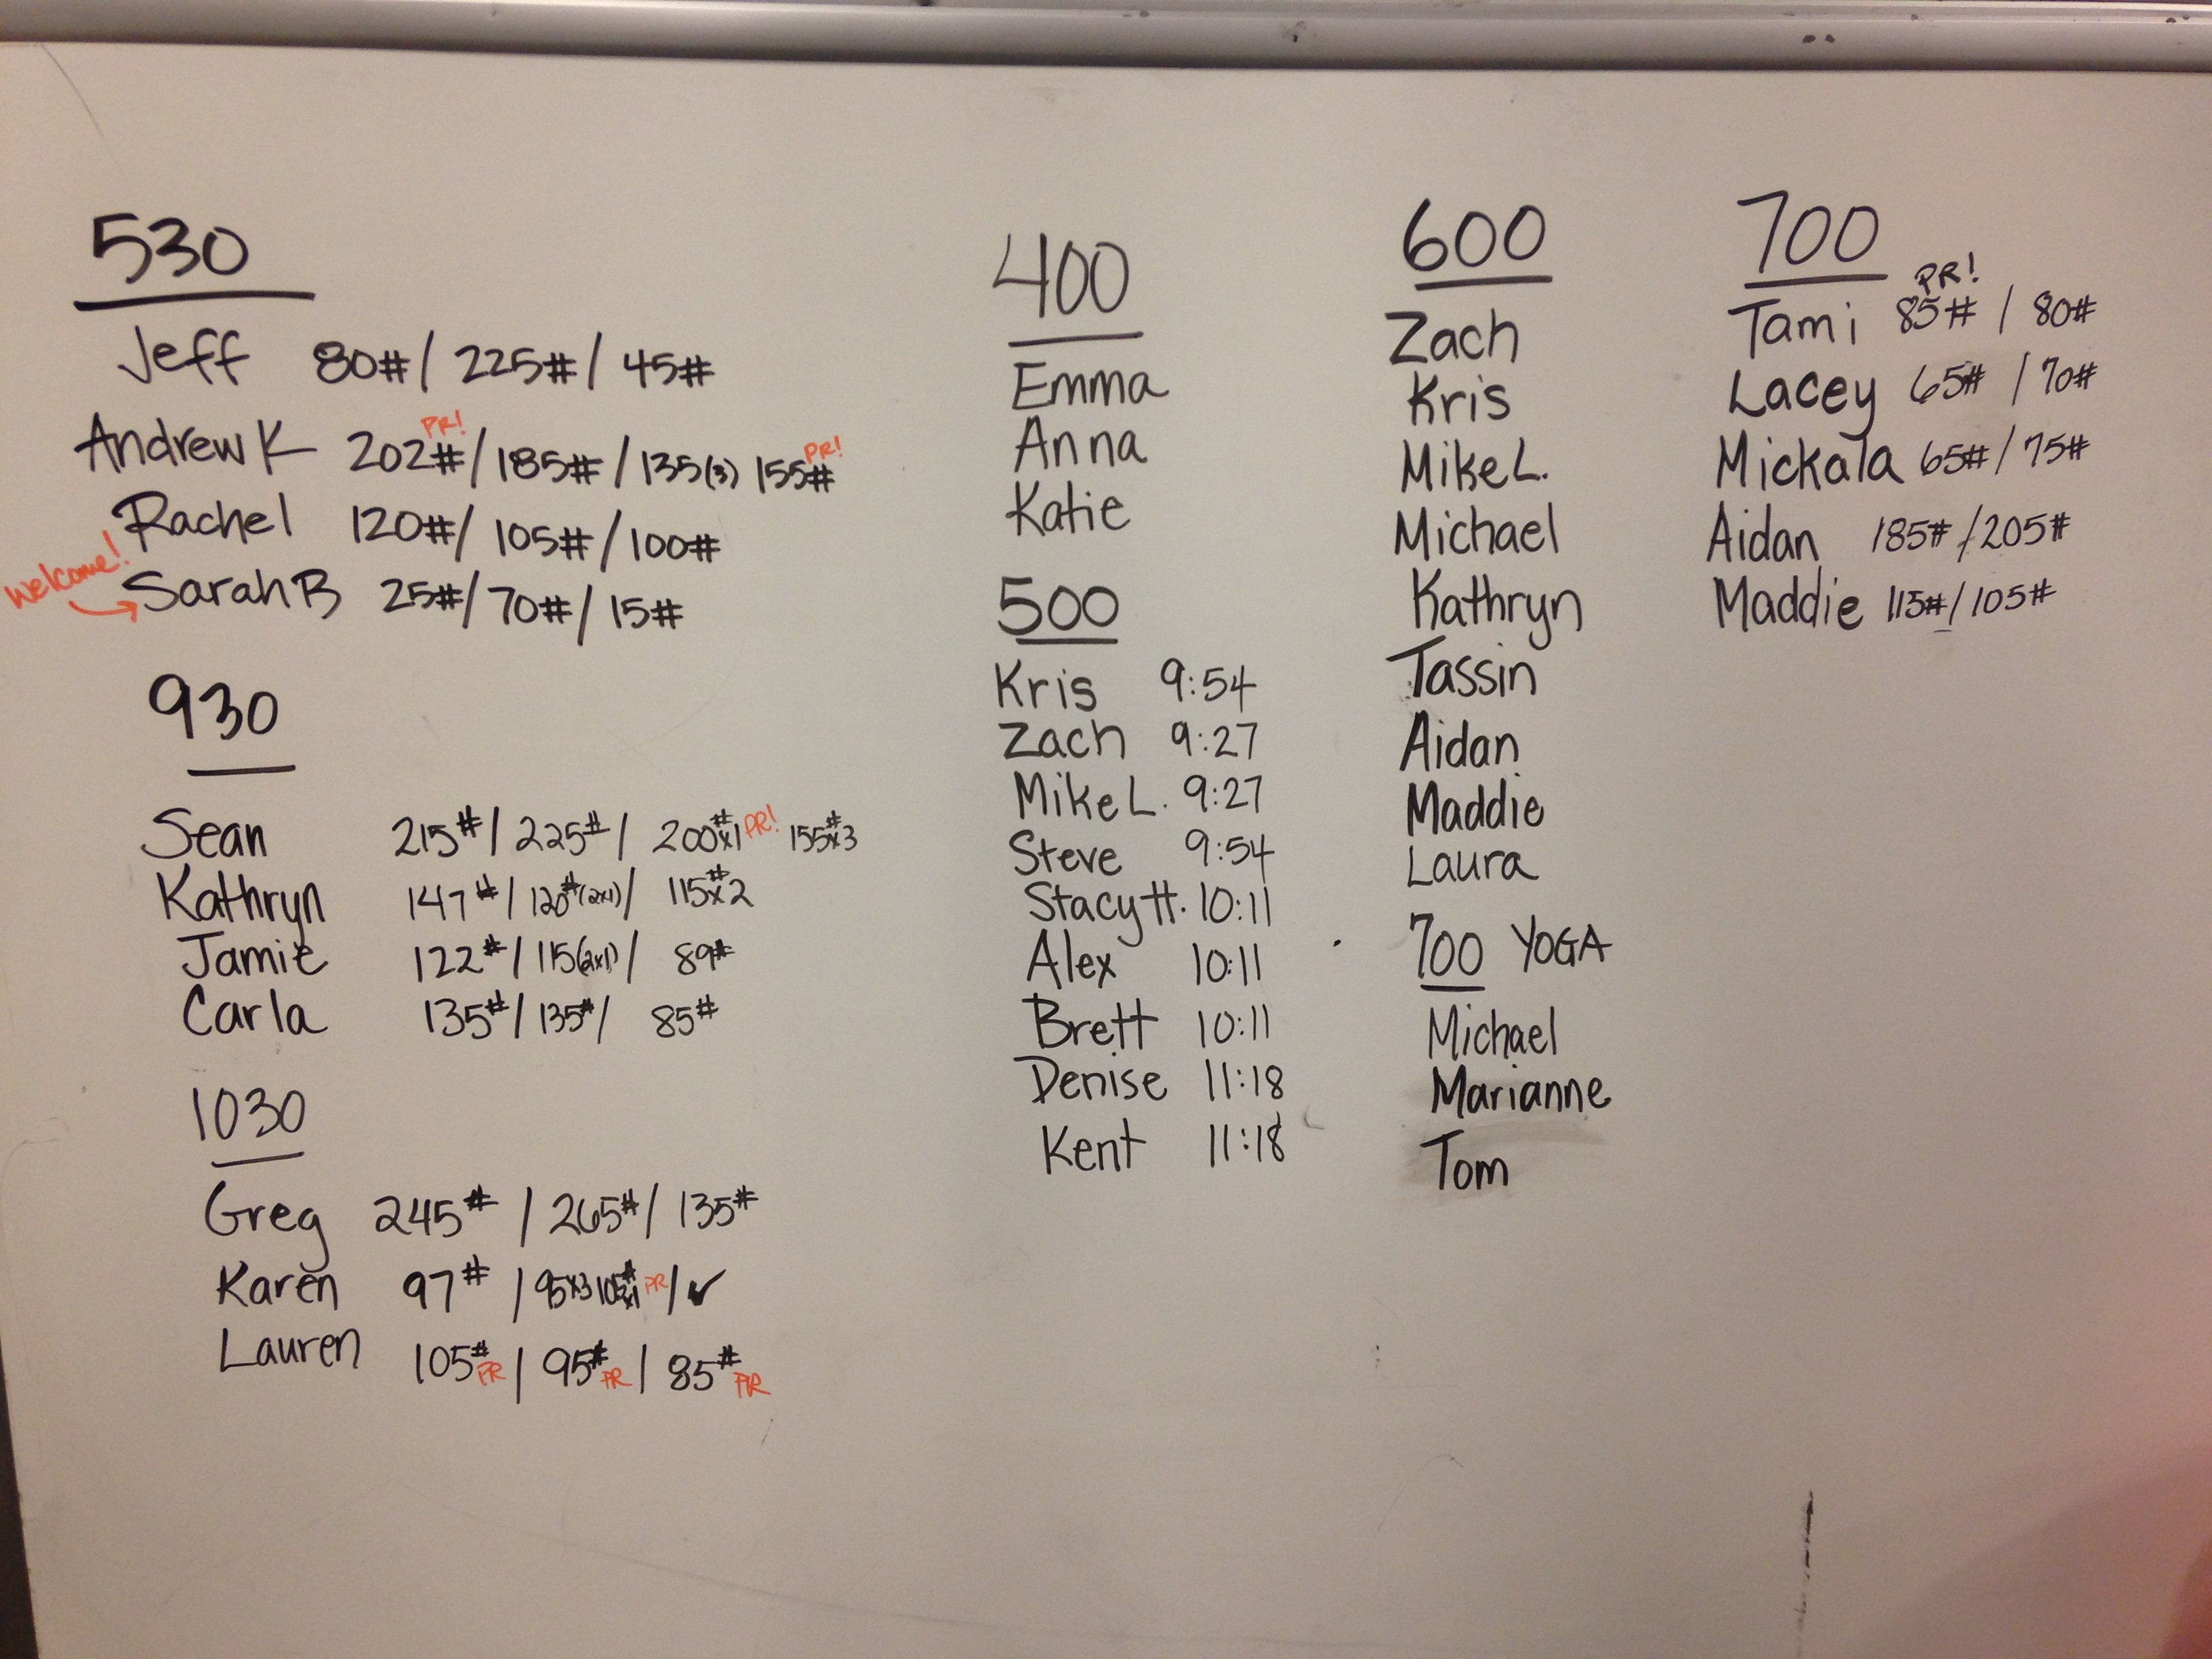 530
Jeff 80# / 225# / 45#
PR!
Andrew K 202# / 185# / 135(3) 155#
PR!
Rachel 120# / 105# / 100#
Welcome!
Sarah B 25# / 70# / 15#
930
Sean 215# / 225# / 200#x1 PR! 155#x3
Kathryn 147# / 120#(2x1) / 115#x2
Jamie 122# / 115(2x1) / 89#
Carla 135# / 135# / 85#
1030
Greg 245# / 265# / 135#
Karen 97# / 95x3 105#x1 PR / ✓
Lauren 105# PR / 95# PR / 85# PR
400
Emma
Anna
Katie
500
Kris 9:54
Zach 9:27
Mike L. 9:27
Steve 9:54
Stacy H. 10:11
Alex 10:11
Brett 10:11
Denise 11:18
Kent 11:18
600
Zach
Kris
Mike L.
Michael
Kathryn
Tassin
Aidan
Maddie
Laura
700 YOGA
Michael
Marianne
Tom
700
PR!
Tami 85# / 80#
Lacey 65# / 70#
Mickala 65# / 75#
Aidan 185# / 205#
Maddie 115# / 105#